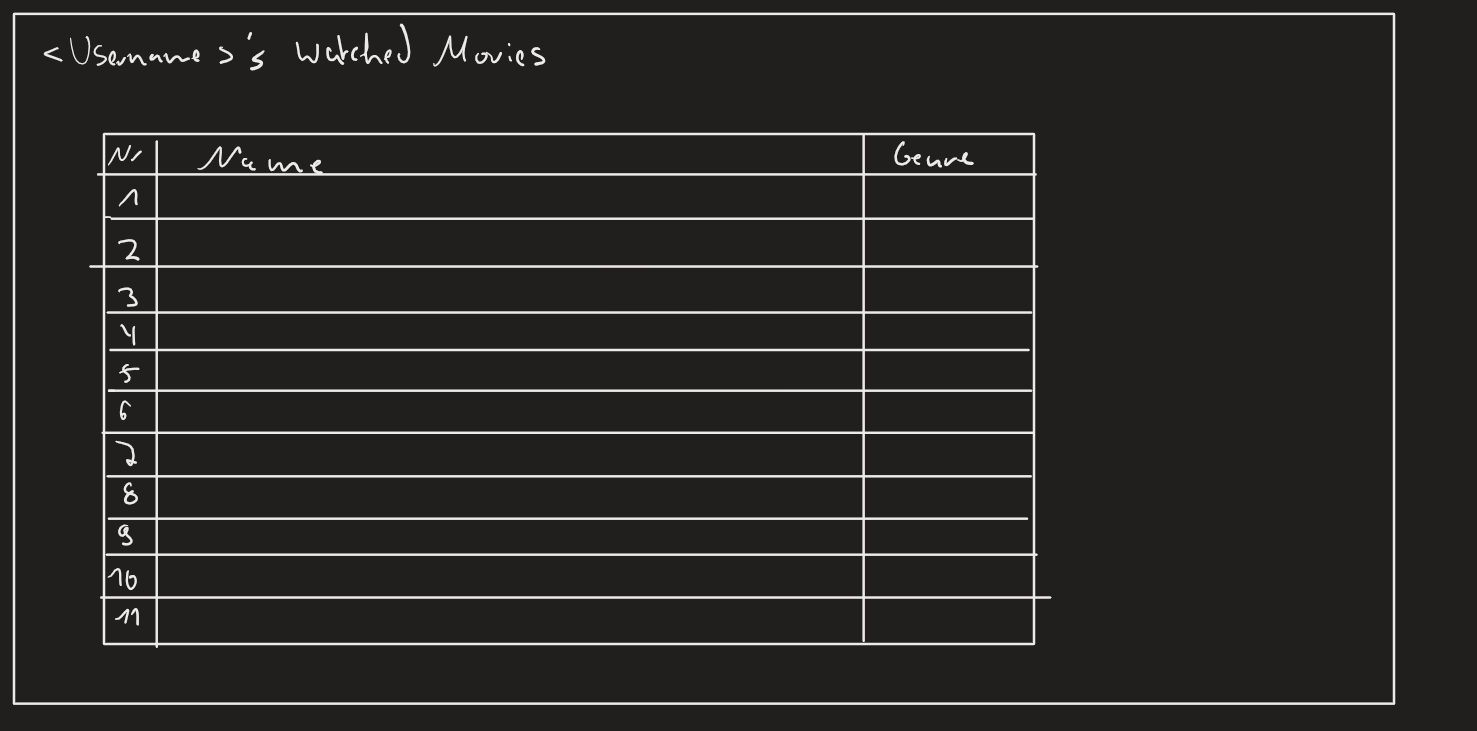 <Username>'s Watched Movies
Nr Name Genre
1
2
3
4
5
6
7
8
9
10
11